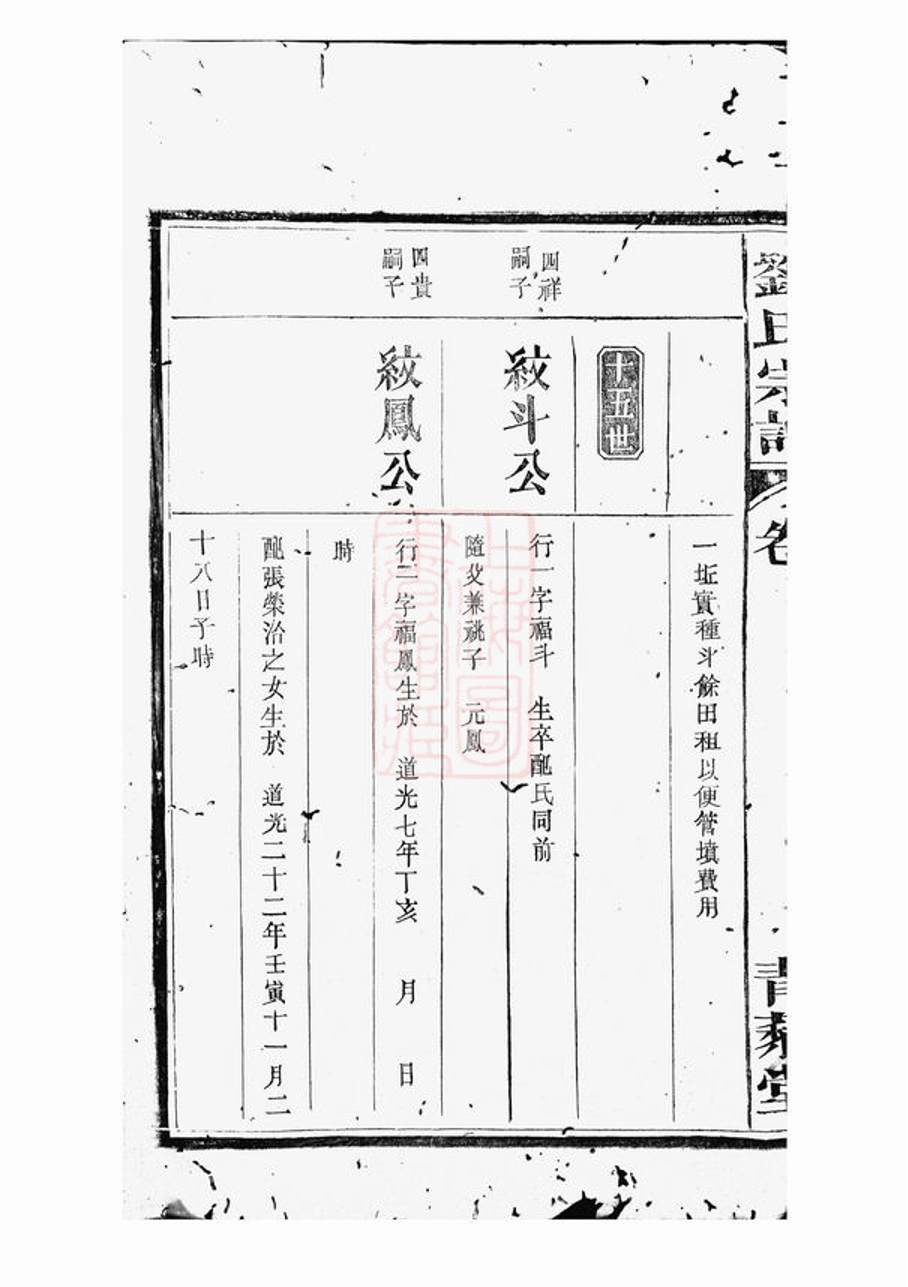 劉氏宗譜
卷
青藜堂
一坵實種斗餘田租以便管墳費用
十五世
四祥
嗣子
紋斗公
行一字福斗 生卒配氏同前
隨父兼祧子 元鳳
四貴
嗣子
紋鳳公
行二字福鳳生於 道光七年丁亥 月 日
時
配張榮治之女生於 道光二十二年壬寅十一月二
十八日子時
上海圖
書館藏